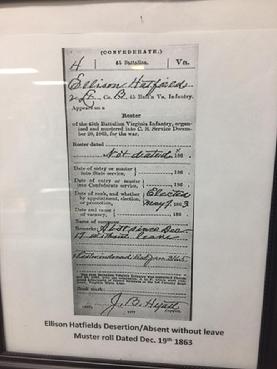 (CONFEDERATE.)
H | 45 Battalion. | Va.
Ellison Hatfield
2 Lt., Co. B, 45 Batt'n Va. Infantry.
Appears on a
Roster
of the 45th Battalion Virginia Infantry, organized and mustered into C. S. Service
for the war.
Roster dated
Not dated, 186 .
Date of entry or muster
into State service, , 186 .
Date of entry or muster
into Confederate service, , 186 .
Date of rank, and whether
by appointment, election,
or promotion, Elected
May 7, 1863
Date and cause
of vacancy, , 186 .
Name of successor
Remarks: Absent since Dec.
without leave
Book mark:
J. B. Hyatt
Copyist.
Ellison Hatfields Desertion/Absent without leave
Muster roll Dated Dec. 19th 1863